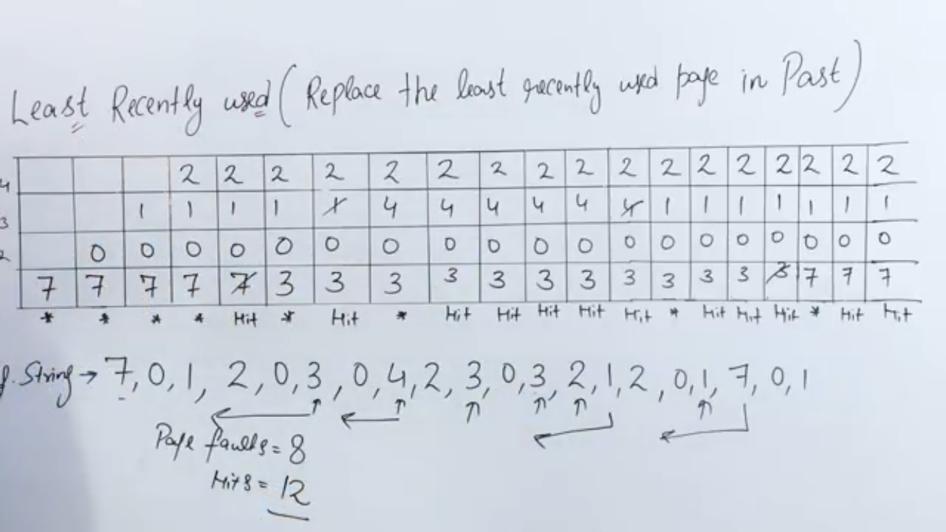 Least Recently used (Replace the least recently used page in Past)
4 2 2 2 2 2 2 2 2 2 2 2 2 2 2 2 2 2
3 1 1 1 1 1 4 4 4 4 4 4 1 1 1 1 1 1 1
2 0 0 0 0 0 0 0 0 0 0 0 0 0 0 0 0 0 0 0
7 7 7 7 7 3 3 3 3 3 3 3 3 3 3 3 3 7 7 7
* * * * Hit * Hit * Hit Hit Hit Hit Hit * Hit Hit Hit * Hit Hit
f. String → 7, 0, 1, 2, 0, 3, 0, 4, 2, 3, 0, 3, 2, 1, 2, 0, 1, 7, 0, 1
Page faults = 8
Hits = 12